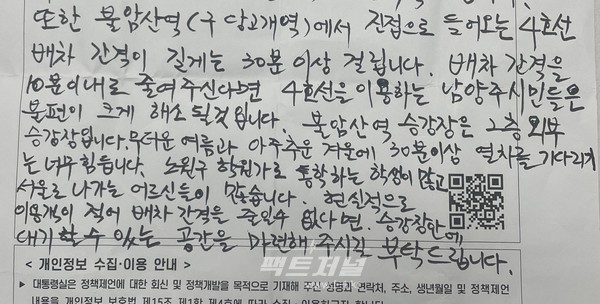 또한 불암산역(구 당고개역)에서 진접으로 들어오는 4호선
배차 간격이 길게는 30분 이상 걸립니다. 배차 간격을
10분이내로 줄여주신다면 4호선을 이용하는 남양주시민들은
불편이 크게 해소 될것 입니다. 불암산역 승강장은 2층 외부
승강장입니다. 무더운 여름과 아주추운 겨울에 30분이상 열차를 기다리기
는 너무 힘듭니다. 노원구 학원가로 통학하는 학생이 많고
서울로 나가는 어르신들이 많습니다. 현실적으로
이용객이 적어 배차 간격을 줄일수 없다면, 승강장안에
대기할수 있는 공간을 마련해 주시길 부탁드립니다.
팩트저널
< 개인정보 수집·이용 안내 >
▸ 대통령실은 정책제언에 대한 회신 및 정책개발을 목적으로 기재해 주신 성명과 연락처, 주소, 생년월일 및 정책제언
내용을 개인정보 보호법 제15조 제1항 제4호에 따라 수집·이용